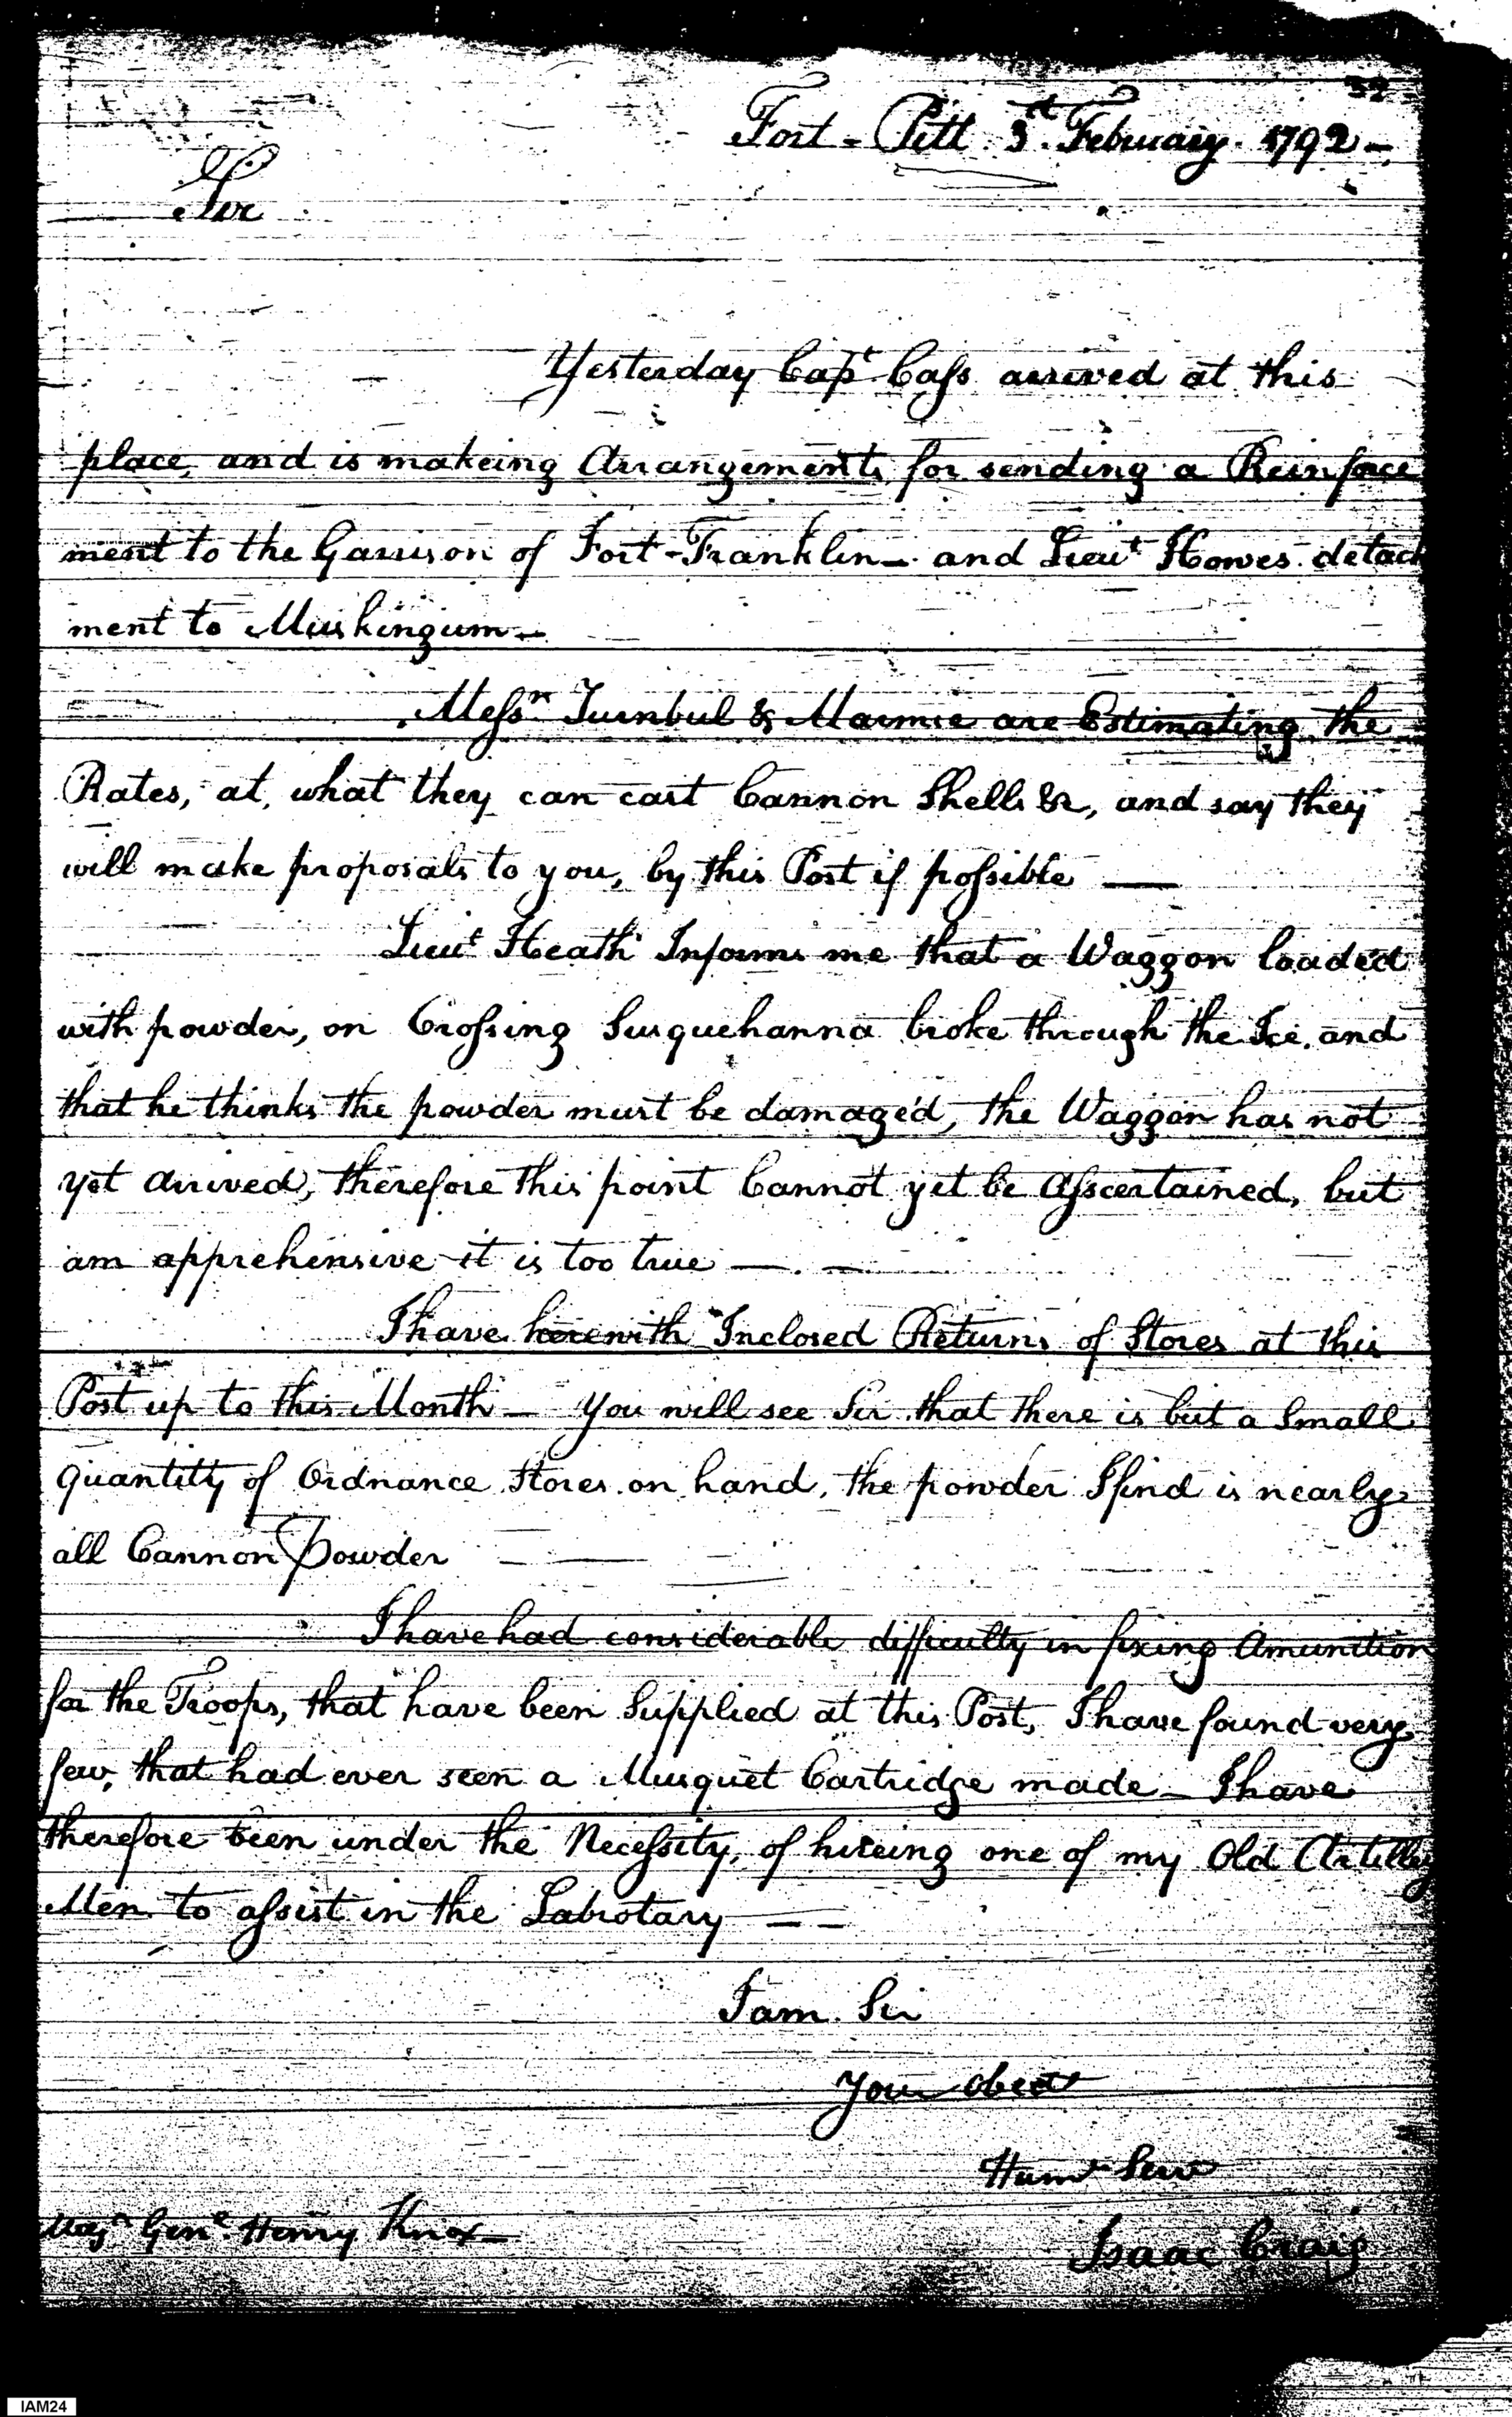 32
Fort-Pitt 3d February. 1792-
Sir
Yesterday Capt. Cass arrived at this
place, and is makeing Arrangements for sending a Reinforce
ment to the Garrison of Fort-Franklin- and Lieut Howes detach
ment to Muskingum-
Messrs Turnbul & Marmie are Estimating the
Rates, at, what they can cast Cannon Shells &c, and say they
will make proposals to you, by this Post if possible —
Lieut Heath Informs me that a Waggon loaded
with powder, on Crossing Susquehanna broke through the Ice, and
that he thinks the powder must be damaged, the Waggon has not
yet arrived, therefore this point Cannot yet be Asscertained, but
am apprehensive it is too true —. —
I have herewith Inclosed Returns of Stores at this
Post up to this Month - you will see Sir that there is but a Small
quantity of Ordnance Stores on hand, the powder I find is nearly
all Cannon Powder
I have had considerable difficulty in fixing Amunition
for the Troops, that have been Supplied at this Post, I have found very
few, that had ever seen a Musquet Cartridge made - I have
therefore been under the Necessity, of hireing one of my Old Artillery
Men to assist in the Labrotary — —
I am Sir
Your obedt
Humle Servt
Majr Genl Henry Knox-
Isaac Craig
IAM24